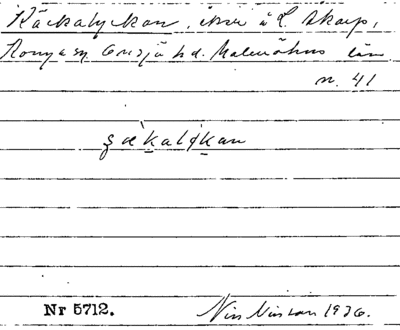 Käckalyckan, åker å L. Skarp,
Konga sn Onsjö hd. Malmöhus län
n. 41
ʒækalykan
Nr 5712. Nils Nilsson 1926.